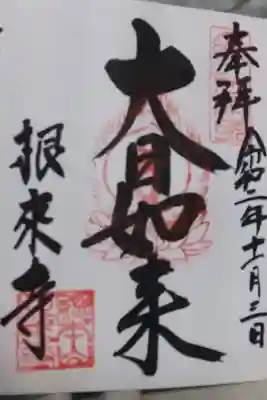 奉拝
令和二年十一月三日
大日如来
根来寺